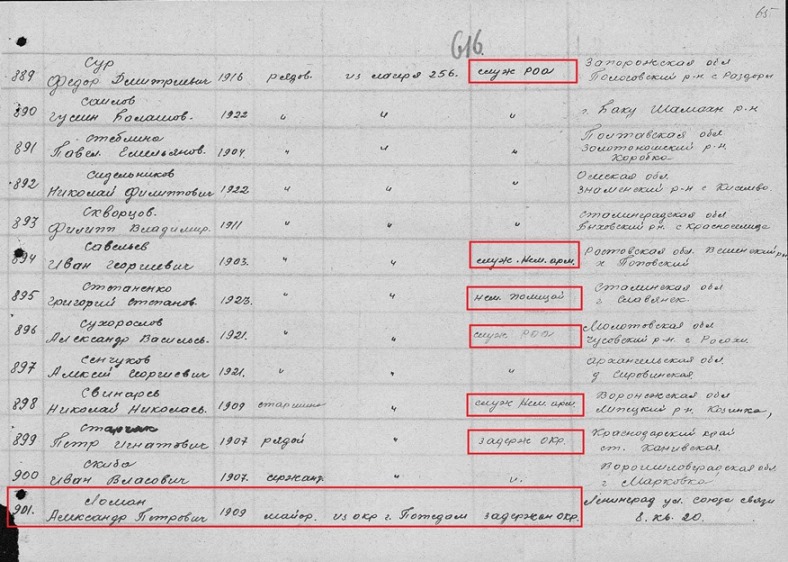 65
616
Сур
889 Федор Дмитриевич 1916 рядов. из лагеря 256. служ РОА Запорожская обл
Пологовский р-н с Раздоры
Саилов
890 Гусейн Балашов. 1922 " " " г. Баку Шамаан р-н
891 Павел Емельянов. 1904. " " " Полтавская обл.
Золотоношский р-н.
Коробка
Сидельников
892 Николай Филиппович 1922 " " " Омская обл.
Знаменский р-н с
Скворцов.
893 Филипп Владимир. 1911 " " " Сталинградская обл
рн. с
Савельев
894 Иван Георгиевич 1903. " " служ. Нем. арм. Ростовская обл. рн
х Поповский
Степаненко
895 Григорий Степанов. 1923. " " нем. полицай Сталинская обл
г Славянск.
Сухорослов
896 Александр Васильев. 1921. " " служ РОА Молотовская обл
Чусовский р-н. с
Сенчуков
897 Алексей Георгиевич 1921. " " " Архангельская обл.
д Суровинская.
Свинарев
898 Николай Николаев. 1909 старшина " служ Нем. арм. Воронежская обл
Липецкий рн. Казинка,
Старчак
899 Петр Игнатович 1907 рядой " задерж окр. Краснодарский край
ст. Каневская.
Скиба
900 Иван Власович 1907. сержант. " ". Ворошиловградская обл.
г Марковка
Ломан
901. Александр Петрович 1909 майор. из окр г. Потсдам задержан окр. Ленинград ул. Союза связи
8. кв. 20.